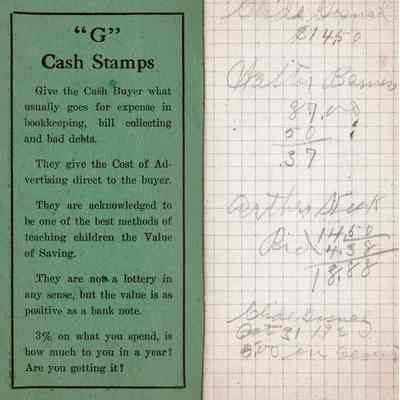 "G"
Cash Stamps
Give the Cash Buyer what
usually goes for expense in
bookkeeping, bill collecting
and bad debts.
They give the Cost of Ad-
vertising direct to the buyer.
They are acknowledged to
be one of the best methods of
teaching children the Value
of Saving.
They are not a lottery in
any sense, but the value is as
positive as a bank note.
3% on what you spend, is
how much to you in a year?
Are you getting it?
$14.50
50
37
14.50
4.38
18.88
Oct 31